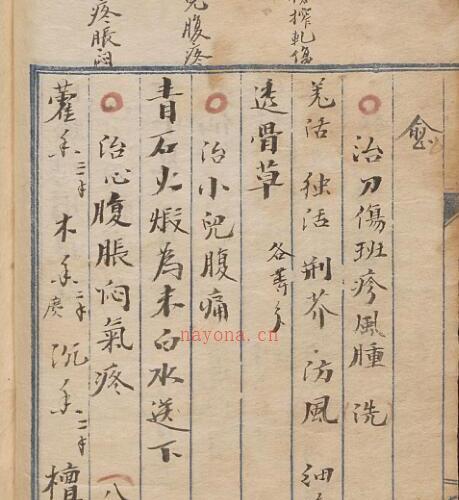 榨軋傷
兒腹疼
疼脹悶
治刀傷班疹風腫 洗
羌活 独活 荆芥 防風 细
透骨草 各等
治小兒腹痛
青石火煅為末白水送下
治心腹脹悶氣疼 八
藿香 木香 沉香 檀
nayona.cn